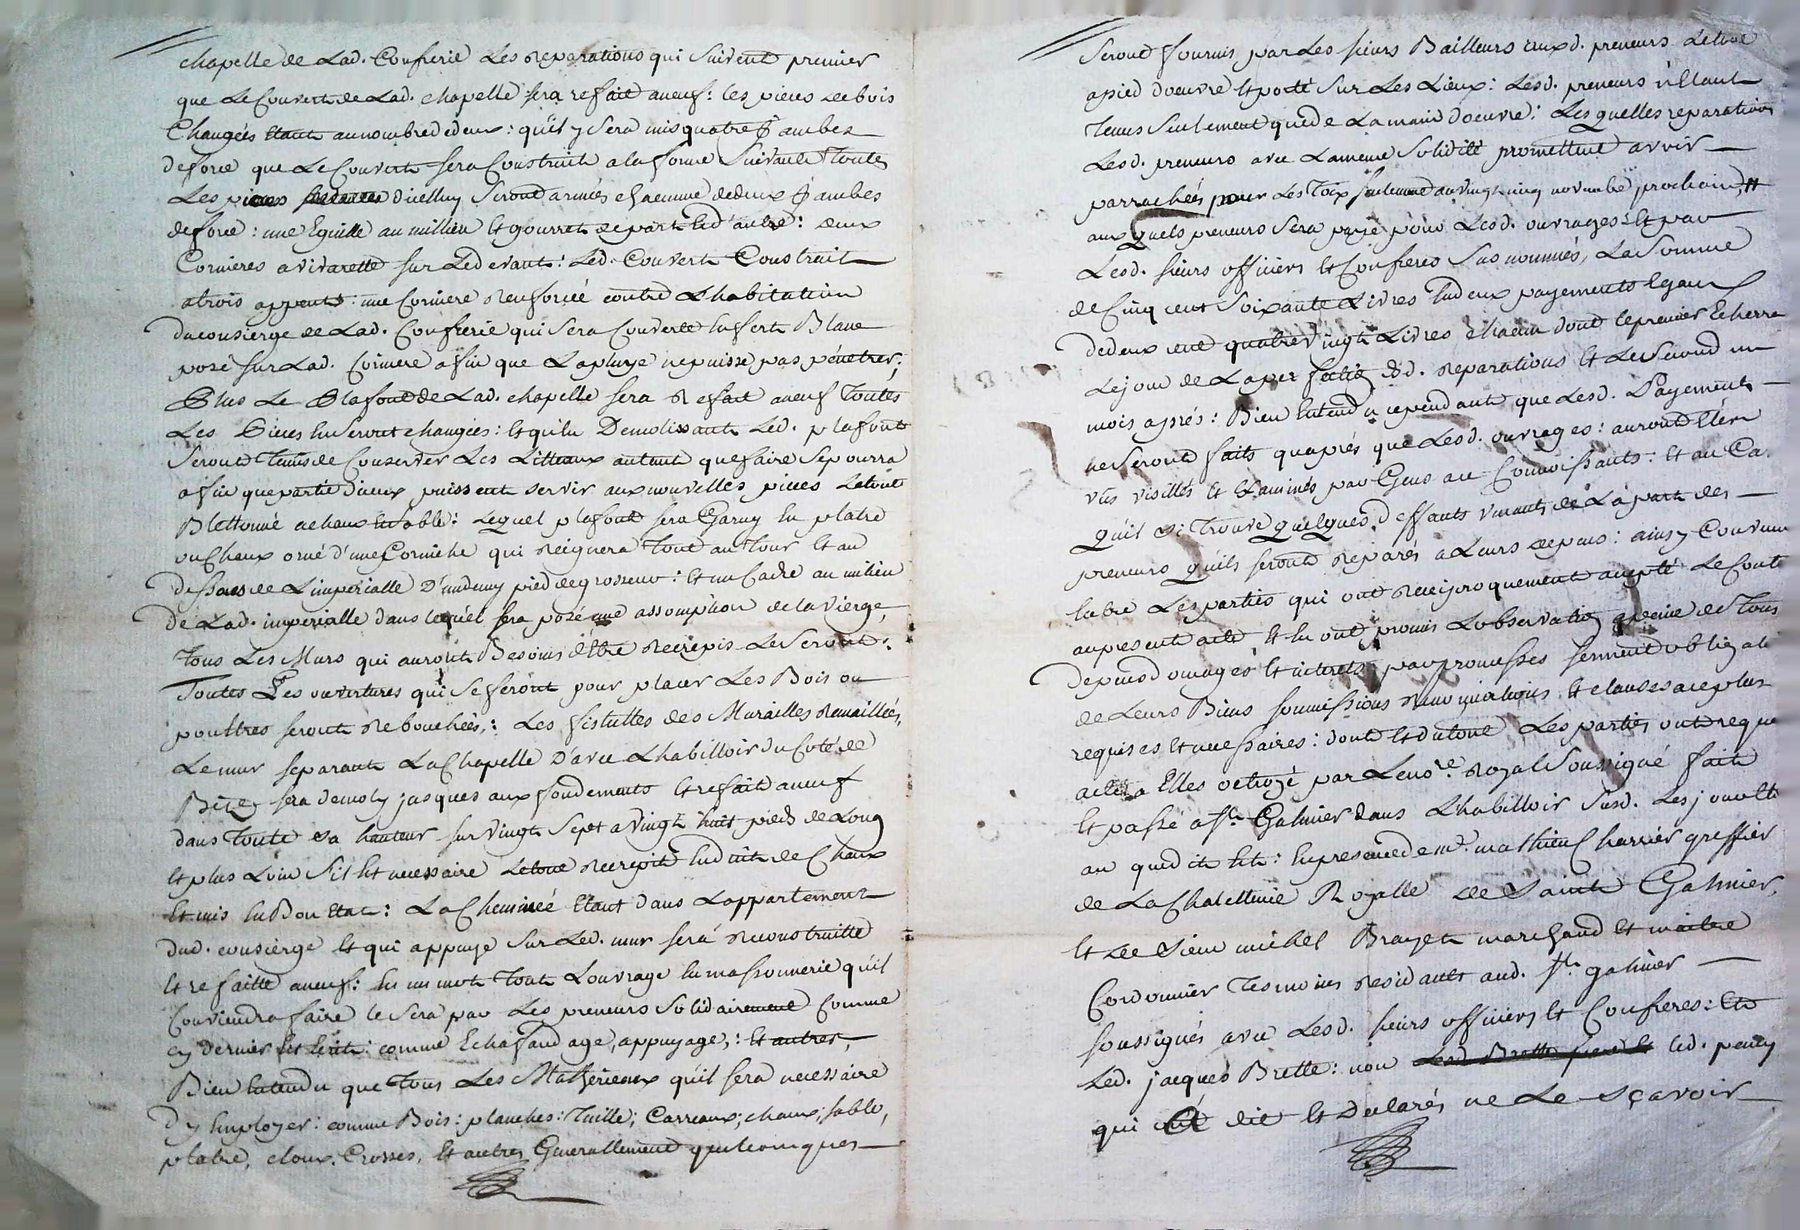 chapelle de Lad. Confrerie Les reparations qui Suivent premier
que Le Couvert de Lad. chapelle sera refait aneuf: les pieces de bois
Changées Etant aunombre dedeux: qu'il y Sera mis quatre Jambes
deforce que Le Couvert sera Construit a la forme Suivante Toutes
Les pieces d'icelluy Seront armées chacunne dedeux Jambes
deforce: une Eguille au millieu Et gourrets depart Et d'autre: deux
Cornieres a vivarette sur Ledevant: Led. Couvert Construit
atrois appents: une Corniere Renforcée contre L'habitation
du consierge de Lad. Confrerie qui Sera Couverte En fert Blanc
posé sur Lad. Corniere afin que La pluye nepuisse pas pénetrer;
Plus Le Plafont de Lad. chapelle sera Refait aneuf Toutes
Les Pieces En Seront changées: Et qu'en Demolissant Led. plafont
Seront Tenus de Conserver Les Litteaux autant que faire Se pourra
afin que partie d'iceux puissent servir aux nouvelles pieces Le tout
Blettonné achaux Et sable: Lequel plafont sera Garny En platre
ou Chaux orné d'une Corniche qui Reignera Tout au Tour Et au
dessous de L'imperialle D'un demy pied de grosseur: Et un Cadre au milieu
de Lad. imperialle dans lequel sera posé une assomption de la vierge,
Tous Les Murs qui auront Besoins d'Etre Recrepis Le Seront:
Toutes Les ouvertures qui Se feront pour placer Les Bois ou
pouttres seront Rebouchées,: Les fistulles des Murailles Remaillées,
Le mur separant La Chapelle D'avec L'habilloir du Coté de
Bize sera demoly jusques aux fondements Et refait aneuf
dans Toute Sa hauteur sur vingt Sept a vingt huit pieds de Long
Et plus Loin S'il Et necessaire Le tout Recrepit Enduit de Chaux
Et mis En Bon Etat: La Cheminée Etant dans L'appartement
dud. consierge Et qui appuye Sur Led. mur sera Reconstruitte
Et refaitte aneuf: En un mot Tout L'ouvrage En massonnerie qu'il
Conviendra faire le Sera par Les preneurs Solidairement Comme
cy dernier comme Echafaudage, appuyage,: Et autres,
Bien Entendu que Tous Les Matherieaux qu'il sera necessaire
D'y Employer: comme Bois: planches: Tuille; Carreaux; chaux, sable,
platre, cloux, Crosses, Et autres Generallement quelconques
Seront fournis par Les sieurs Bailleurs auxd. preneurs Le tout
apied d'oeuvre Et porté Sur Les Lieux: Lesd. preneurs n'Etant
Tenus Seulement que de La main d'oeuvre: Les quelles reparations
Lesd. preneurs avec La meme Solidité promettent avoir
parrachées pour Les Toix seulement au vingt cinq novembre prochain
aux quels preneurs Sera payé pour Lesd. ouvrages Et par
Lesd. sieurs officiers Et Confreres Sus nommés, La Somme
de Cinq cent Soixante Livres En deux payements Egaux
de deux cent quatre vingt Livres chacun dont le premier Echerra
Le jour de La perfection dsd. reparations Et Le Second un
mois aprés: Bien Entendu cependant que Lesd. Payements
ne Seront faits qu'aprés que Lesd. ouvrages: auront Eté
vûs visittés Et Examinés par Gens ace Connoissants: Et au Ca
qu'il S'i Trouve quelques deffauts venants de La part des
preneurs qu'ils seront Reparés a Leurs depens: ainsy Convenu
Entre Les parties qui ont Reciproquement accepté Le Conte
au present acte Et En ont promis L'observation a peine de Tous
depens domages Et interets par promesses serment obligati
de Leurs Biens soumissions Renonciations Et clauses ace plus
requises Et necessaires: dont Et du tout Les parties ont reque
acte a Elles octroyé par Le nore. Royal Soussigné fait
Et passé a St. Galmier dans L'habilloir Susd. Les jour Et
an que dit Et: En presence de me. mathieu Charrier greffier
de La Chatellenie Royalle de Saint Galmier,
Et de Sieur michel Brayet marchand Et maitre
Cordonnier Tesmoins Residants aud. St. galmier
soussignés avec Lesd. sieurs officiers Et Confreres: Et
Led. jacques Brette: non Led.
qui a dit Et Declarés ne Le Sçavoir